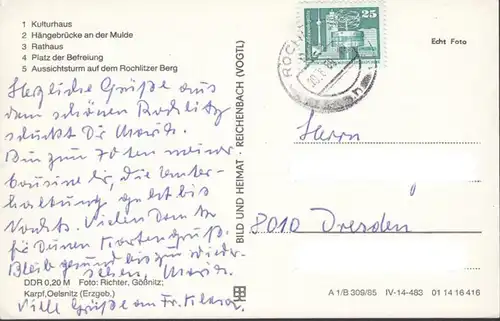 1 Kulturhaus
2 Hängebrücke an der Mulde
3 Rathaus
4 Platz der Befreiung
5 Aussichtsturm auf dem Rochlitzer Berg
Herzliche Grüße aus
dem schönen Rochlitz
schickt Dir
Bin zum 70ten meiner
Cousine hier, die Unter-
haltung geht bis
Nachts. Vielen Dank
für Deinen Kartengruß.
Bleib gesund bis zum wieder-
sehen,
DDR 0,20 M Foto: Richter, Gößnitz;
Karpf, Oelsnitz (Erzgeb.)
Viele Grüße an Fr.
BILD UND HEIMAT · REICHENBACH (VOGTL)
25
DDR
ROCH
Echt Foto
Herrn
8010 Dresden
A 1/B 309/85 IV-14-483 01 14 16 416